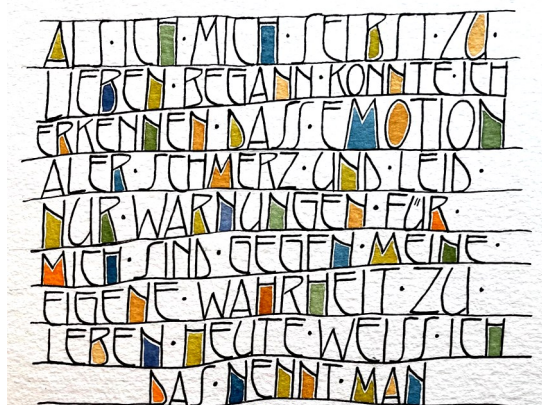 ALS·ICH·MICH·SELBST·ZU·
LIEBEN·BEGANN·KONNTE·ICH
ERKENNEN·DASS·EMOTION
ALER·SCHMERZ·UND·LEID·
NUR·WARNUNGEN·FÜR·
MICH·SIND·GEGEN·MEINE·
EIGENE·WAHRHEIT·ZU·
LEBEN·HEUTE·WEISS·ICH
DAS·NENNT·MAN